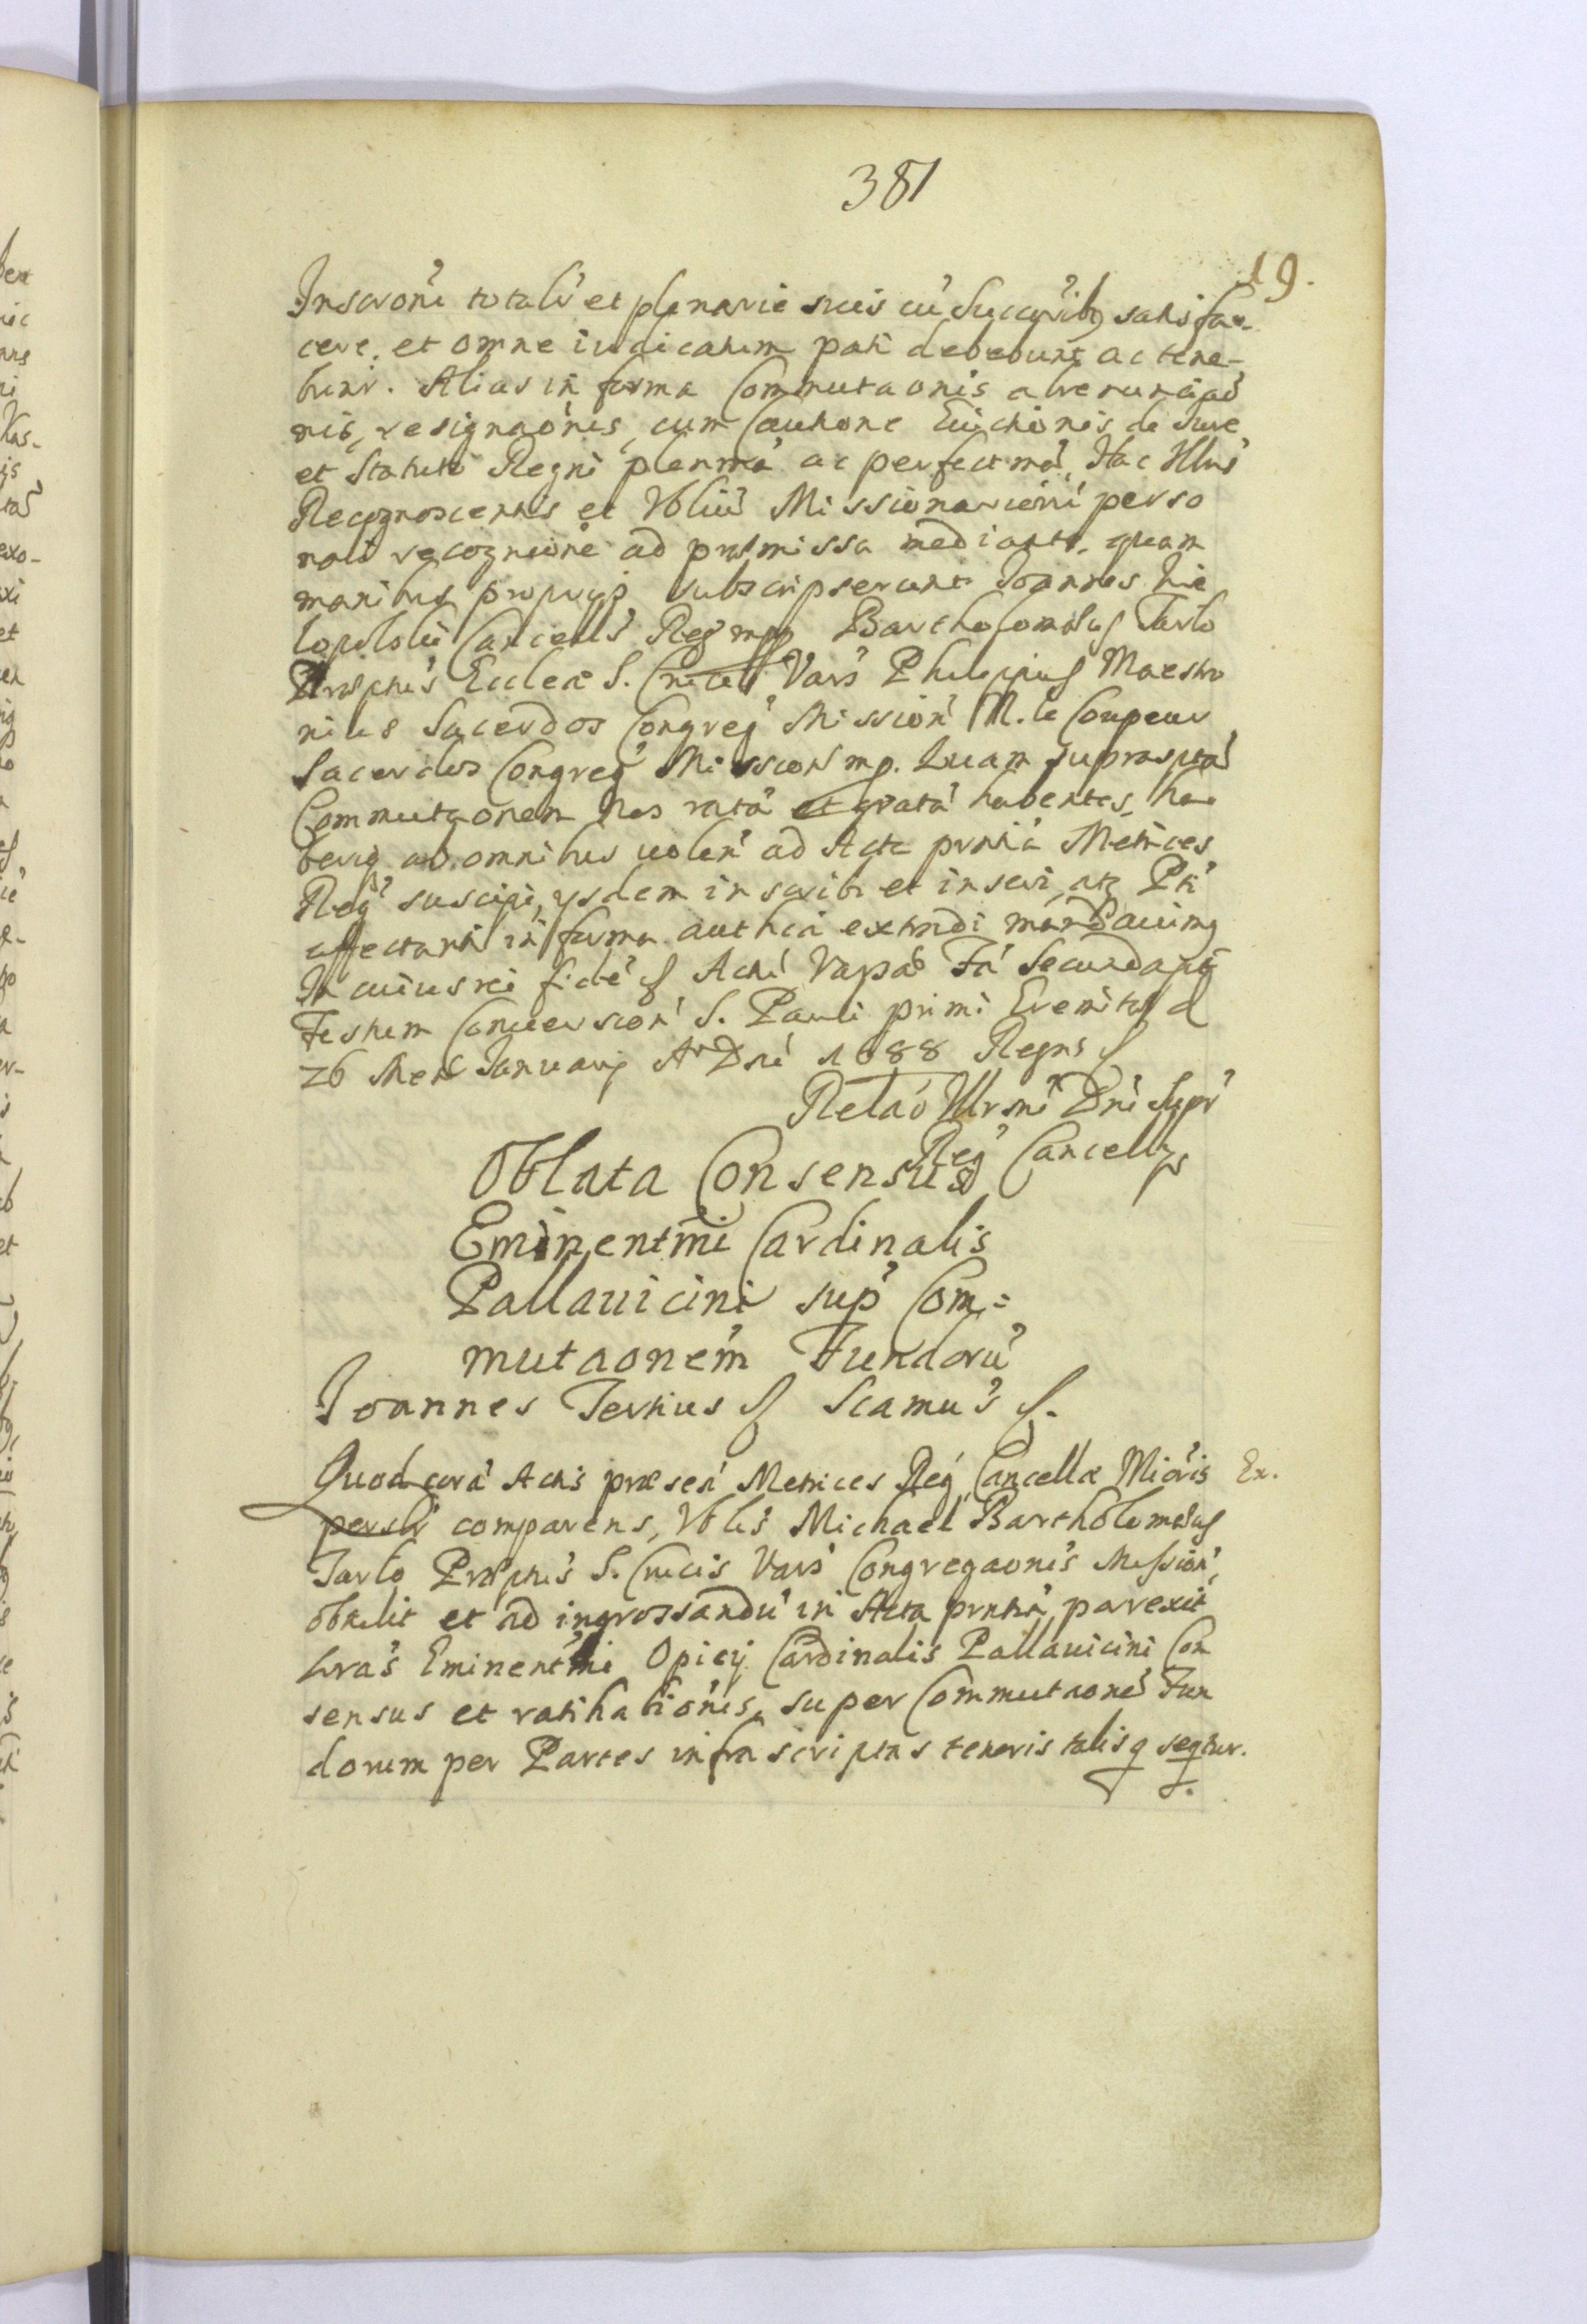 381
19.
Inscrõni totalr̃ et plenarie suis cũ Succr̃ibꝫ satisfa-
cere, et omne iudicatum pati debebunt ac tene-
bunr̃. Alias in forma Commutaonis abrenunciaõ
nis, resignaõnis, cum Cautione Euictionis de Jure
et Statuti Regni plenmã ac perfectmã, Hac Illus̃
Recognoscentis et Vbliũ Missionariorũ perso
nali recognitione ad præmissa mediante, quam
manibus proprijs subscripserunt Joannes Wie
lopolski Cancells̃ Reg̃ mpp Bartholomæus Tarlo
Præptus̃ Ecclæ S. Crucis Vars̃ Philippus Maestro
nius Sacerdos Congreg̃ Mission̄ N. le Coupeur
Sacerdos Congreg̃ Mission mp. Quam suprasptã
Commutaonem Nos ratã et gratã habentes, ha
beriq ab omnibus uolen̄ ad Acta prntia Metrices
Reg̃ suscipi, ysdem inscribi et inseri, atꝫ Pti
affectanti in forma authca extradi mandauimꝰ
In cuius rei fidẽ ꝭ Actũ Varsaõ Fã Secunda põ
Festum Conuersion̄ S. Pauli primi Eremitæ d
26 Mens Januarij Aº Dnĩ 1688 Regns ꝭ
Relaõ Illrsmĩ Dnĩ Supr̃
Reg̃ Cancellrs
Oblata Consensus
Eminentmi Cardinalis
Pallauicini sup̃ Com=
mutaonem Fundorũ
Joannes Tertius ꝭ Scamus̃ ꝭ.
Quod corã Actis præsen̄ Metrices Reg̃ Cancellæ Mioris
Ex.
perslr̃ comparens, Vblis̃ Michael Bartholomæus
Tarlo Præptus̃ S. Crucis Vars̃ Congregaonis Mission̄,
obtulit et ad ingrossandũ in Acta prntia, porexit
Lrãs Eminentmi Opicij Cardinalis Pallauicini Con
sensus et ratihabiõnis, super Commutaonẽ Fun
dorum per Partes infrascriptas tenoris talis q seqtur.